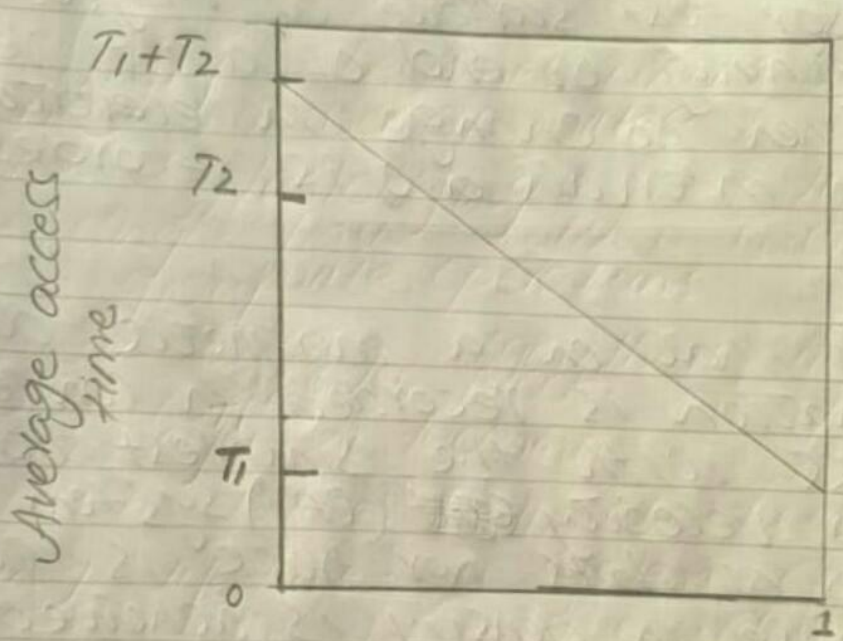 T1+T2
T2
Average access
time
T1
0
1